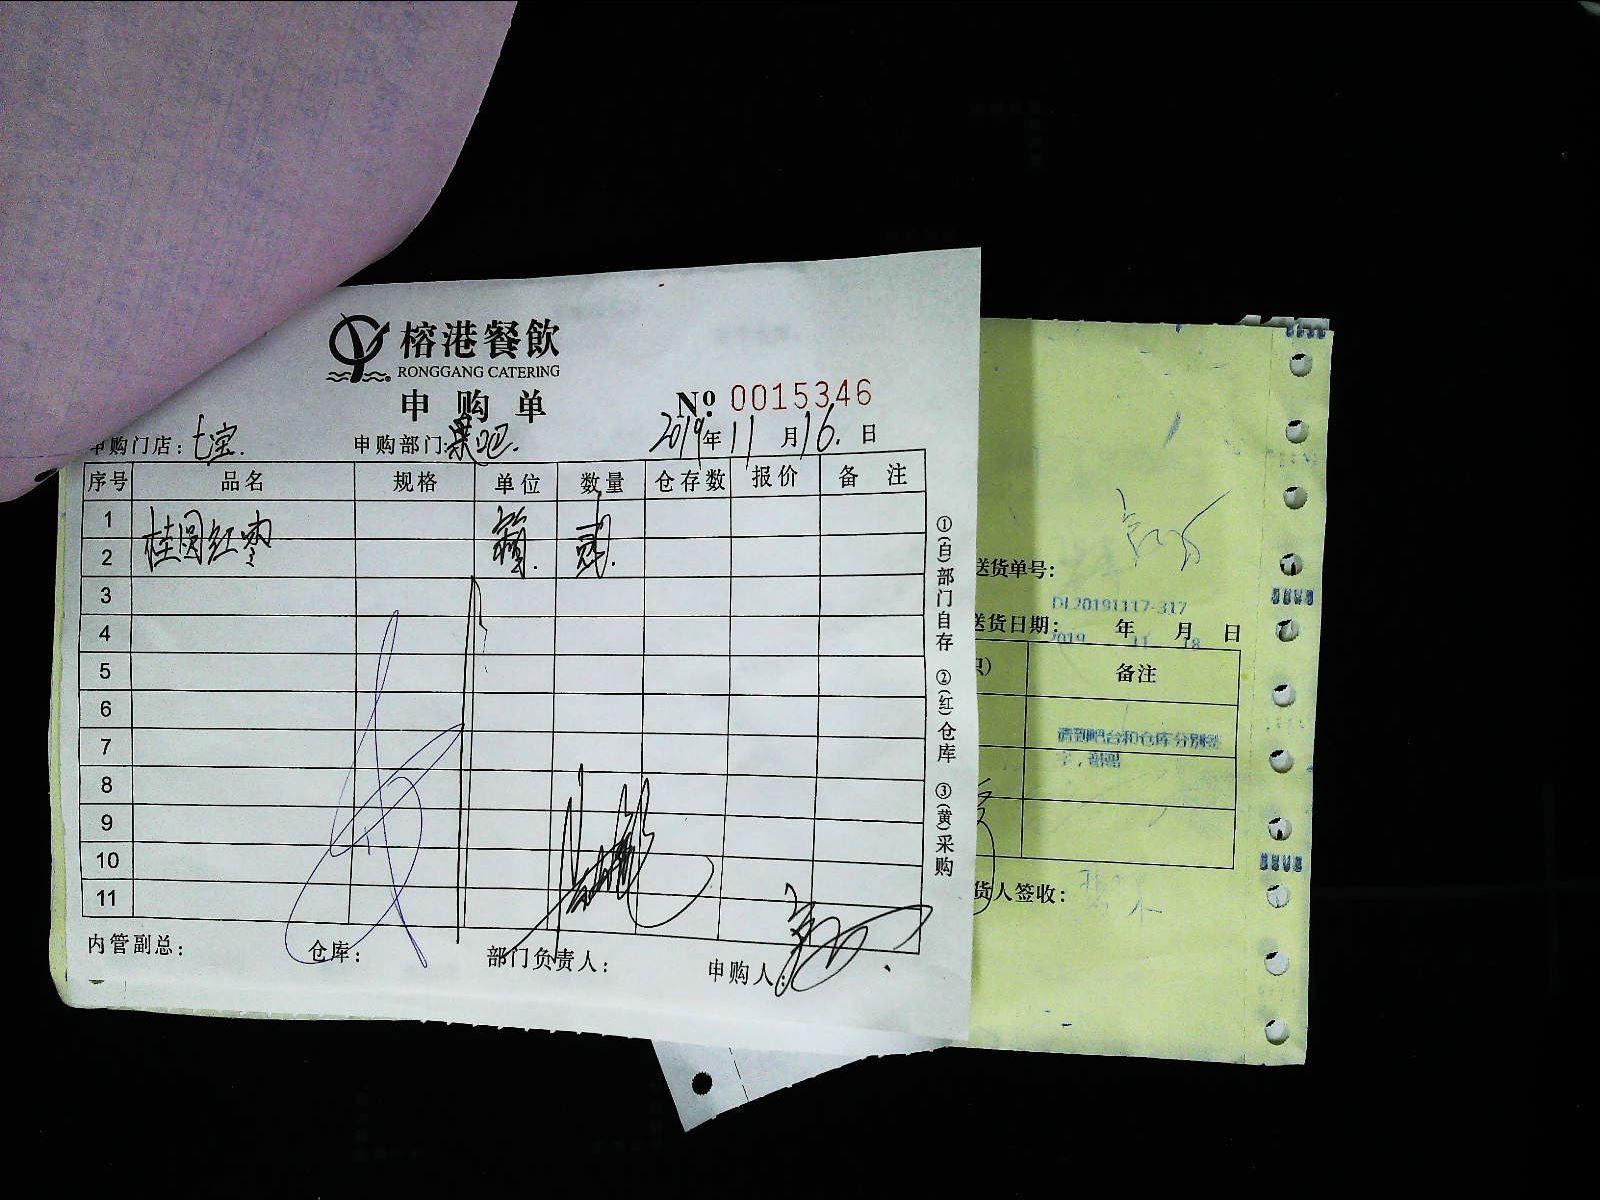 榕港餐飲
RONGGANG CATERING
申购单
№ 0015346
申购门店：七宝. 申购部门：果吧. 2019年11月16.日
序号 品名 规格 单位 数量 仓存数 报价 备注
1
2 桂圆红枣 贰.
3
4
5
6
7
8
9
10
11
内管副总： 仓库： 部门负责人： 申购人：
①(白)部门自存 ②(红)仓库 ③(黄)采购
送货单号：
DL20191117-317
送货日期： 年 月 日
2019 11 18
备注
请到吧台和仓库分别签
字，谢谢
货人签收：